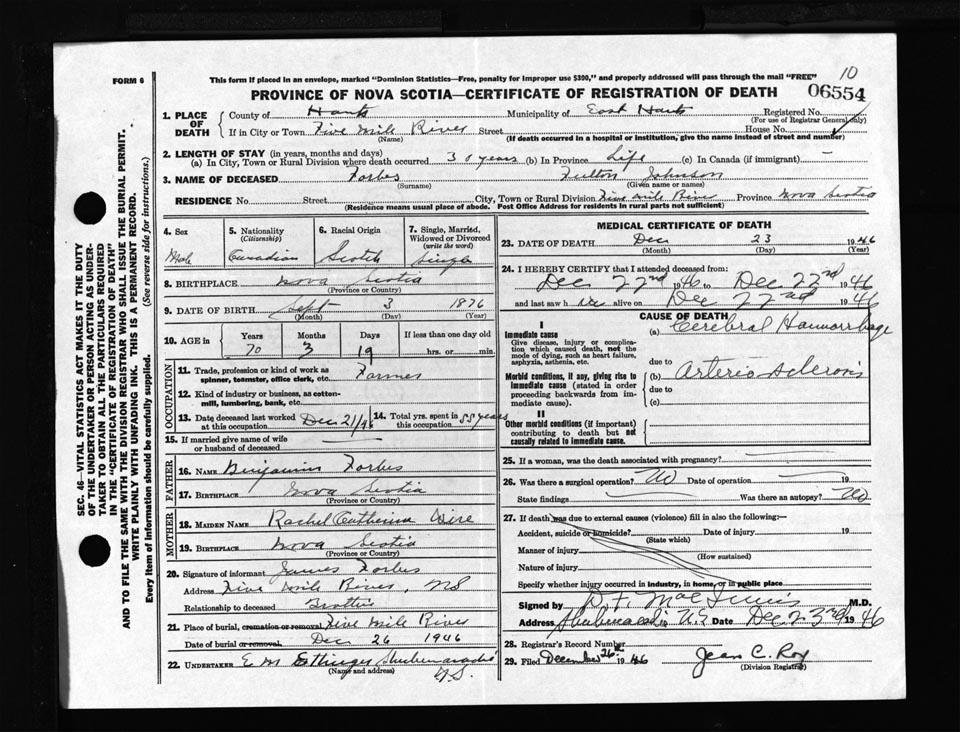 10
FORM 6
This form if placed in an envelope, marked "Dominion Statistics—Free, penalty for improper use $300," and properly addressed will pass through the mail "FREE"
PROVINCE OF NOVA SCOTIA—CERTIFICATE OF REGISTRATION OF DEATH
06554
SEC. 46—VITAL STATISTICS ACT MAKES IT THE DUTY
OF THE UNDERTAKER OR PERSON ACTING AS UNDER-
TAKER TO OBTAIN ALL THE PARTICULARS REQUIRED
IN THE "CERTIFICATE OF REGISTRATION OF DEATH"
AND TO FILE THE SAME WITH THE DIVISION REGISTRAR WHO SHALL ISSUE THE BURIAL PERMIT.
WRITE PLAINLY WITH UNFADING INK. THIS IS A PERMANENT RECORD.
Every item of Information should be carefully supplied. (See reverse side for instructions.)
1. PLACE OF DEATH
County of Hants Municipality of East Hants Registered No.
(For use of Registrar General only)
If in City or Town Five Mile River Street House No.
(Name) (If death occurred in a hospital or institution, give the name instead of street and number)
2. LENGTH OF STAY (in years, months and days)
(a) In City, Town or Rural Division where death occurred 30 years (b) In Province Life (c) In Canada (if immigrant) —
3. NAME OF DECEASED Forbes Fulton Johnson
(Surname) (Given name or names)
RESIDENCE No. Street City, Town or Rural Division Five Mile River Province Nova Scotia
(Residence means usual place of abode. Post Office Address for residents in rural parts not sufficient)
4. Sex
Male
5. Nationality
(Citizenship)
Canadian
6. Racial Origin
Scotch
7. Single, Married,
Widowed or Divorced
(write the word)
Single
8. BIRTHPLACE Nova Scotia
(Province or Country)
9. DATE OF BIRTH Sept 3 1876
(Month) (Day) (Year)
10. AGE in
Years Months Days If less than one day old
70 3 19 hrs. or min.
OCCUPATION
11. Trade, profession or kind of work as
spinner, teamster, office clerk, etc. Farmer
12. Kind of industry or business, as cotton-
mill, lumbering, bank, etc.
13. Date deceased last worked
at this occupation Dec 21/46
14. Total yrs. spent in
this occupation 55 years
15. If married give name of wife
or husband of deceased
FATHER
16. NAME Benjamin Forbes
17. BIRTHPLACE Nova Scotia
(Province or Country)
MOTHER
18. MAIDEN NAME Rachel Catherine Wire
19. BIRTHPLACE Nova Scotia
(Province or Country)
20. Signature of informant James Forbes
Address Five Mile River, NS
Relationship to deceased Brother
21. Place of burial, cremation or removal Five Mile River
Date of burial or removal Dec 26 1946
22. UNDERTAKER E M Ettinger Shubenacadie
(Name and address) N.S.
MEDICAL CERTIFICATE OF DEATH
23. DATE OF DEATH Dec 23 1946
(Month) (Day)
24. I HEREBY CERTIFY that I attended deceased from:
Dec 22nd 1946 to Dec 22nd 1946
and last saw h im alive on Dec 22nd 1946
CAUSE OF DEATH
I
Immediate cause
Give disease, injury or complica-
tion which caused death, not the
mode of dying, such as heart failure,
asphyxia, asthenia, etc.
(a) Cerebral Haemorrhage
due to
Morbid conditions, if any, giving rise to
immediate cause (stated in order
proceeding backwards from im-
mediate cause).
(b) Arterio Sclerosis
due to
(c)
II
Other morbid conditions (if important)
contributing to death but not
causally related to immediate cause.
25. If a woman, was the death associated with pregnancy?
26. Was there a surgical operation? No Date of operation 19
State findings Was there an autopsy? No
27. If death was due to external causes (violence) fill in also the following:—
Accident, suicide or homicide? Date of injury 19
(State which)
Manner of injury
(How sustained)
Nature of injury
Specify whether injury occurred in industry, in home, or in public place
Signed by D F MacInnis M.D.
Address Shubenacadie N.S Date Dec 23rd 1946
28. Registrar's Record Number
29. Filed December 26th 1946 Jean C. Roy
(Division Registrar)